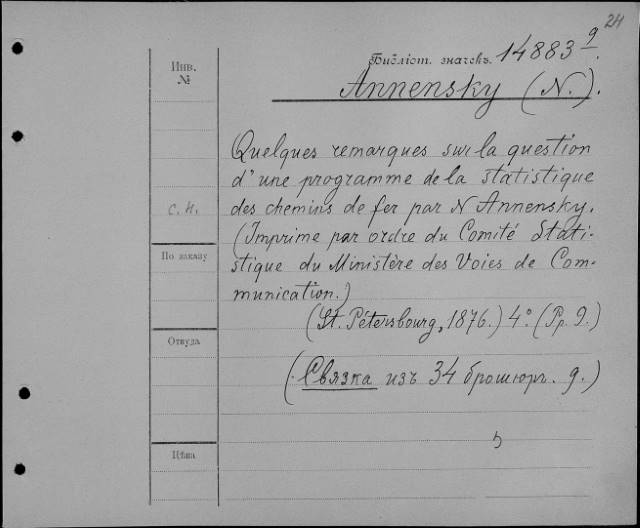 24
Инв.
№
Библіот. значекъ. 14883 9.
Annensky (N.).
Quelques remarques sur la question
d'une programme de la statistique
с. н.
des chemins de fer par N Annensky.
(Imprime par ordre du Comité Stati-
По заказу
stique du Ministère des Voies de Com-
munication.)
(St. Pétersbourg, 1876.) 4º. (Pp. 9.)
Откуда
(Связка изъ 34 брошюръ. 9.)
Цѣна